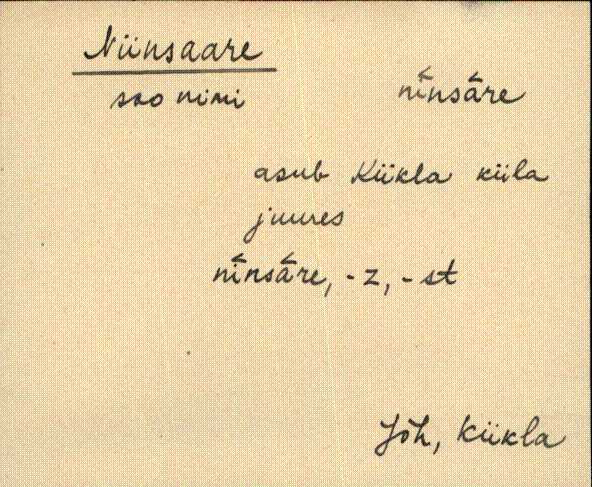 Niinsaare
soo nimi nî́nsā́re
asub Kiikla küla
juures
nî́nsā́re, -z, -st
Jõh, Kiikla